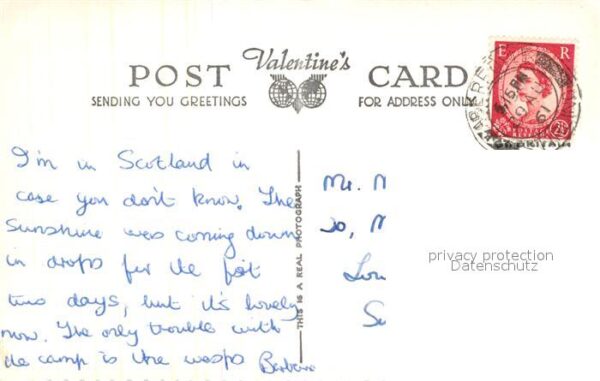 Valentine's
POST CARD
SENDING YOU GREETINGS
FOR ADDRESS ONLY
E R
2½
I'm in Scotland in
case you don't know. The
Sunshine was coming down
in drops for the fist
two days, but it's lovely
now. The only trouble with
the camp is the wasps Barbara
THIS IS A REAL PHOTOGRAPH
Mr. M
30, M
Lon
Se
privacy protection
Datenschutz